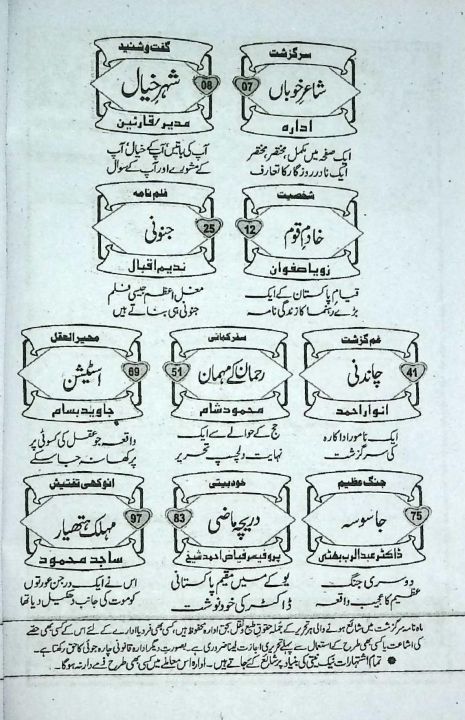 سرگزشت
شاعرِ خوباں
07
ادارہ
ایک صفحے میں مکمل، مختصر مختصر
ایک نادر روزگار کا تعارف
گفت و شنید
شہرِ خیال
08
مدیر/قارئین
آپ کی باتیں آپ کے خیال، آپ
کے مشورے اور آپ کے سوال
شخصیت
خادم قوم
12
زویا صفوان
قیام پاکستان کے ایک
بڑے رہنما کا زندگی نامہ
فلم نامہ
جنونی
25
ندیم اقبال
مغل اعظم جیسی فلم
جنونی ہی بناتے ہیں
غم گزشت
چاندنی
41
انوار احمد
ایک نامور اداکارہ
کی سرگزشت
سفر کہانی
رحمان کے مہمان
51
محمود شام
حج کے حوالے سے ایک
نہایت دلچسپ تحریر
محیر العقل
اسٹیشن
69
جاوید بسام
واقعہ جو عقل کی کسوٹی پر
پرکھا نہ جا سکے
جنگ عظیم
جاسوسہ
75
ڈاکٹر عبدالرب بھٹی
دوسری جنگ
عظیم کا عجیب واقعہ
خود بیتی
دریچہ ماضی
83
پروفیسر فیاض احمد شیخ
یو کے میں مقیم پاکستانی
ڈاکٹر کی خودنوشت
انوکھی تفتیش
مہلک ہتھیار
97
ساجد محمود
اس نے ایک درجن عورتوں
کو موت کی جانب دھکیل دیا تھا
ماہنامہ سرگزشت میں شائع ہونے والی ہر تحریر کے جملہ حقوق طبع و نقل بحق ادارہ محفوظ ہیں، کسی بھی فرد یا ادارے کے لئے اس کے کسی بھی حصے
کی اشاعت یا کسی بھی طرح کے استعمال سے پہلے تحریری اجازت لینا ضروری ہے۔ بصورت دیگر ادارہ قانونی چارہ جوئی کا حق رکھتا ہے۔
● تمام اشتہارات نیک نیتی کی بنیاد پر شائع کئے جاتے ہیں۔ ادارہ اس معاملے میں کسی بھی طرح ذمے دار نہ ہوگا۔